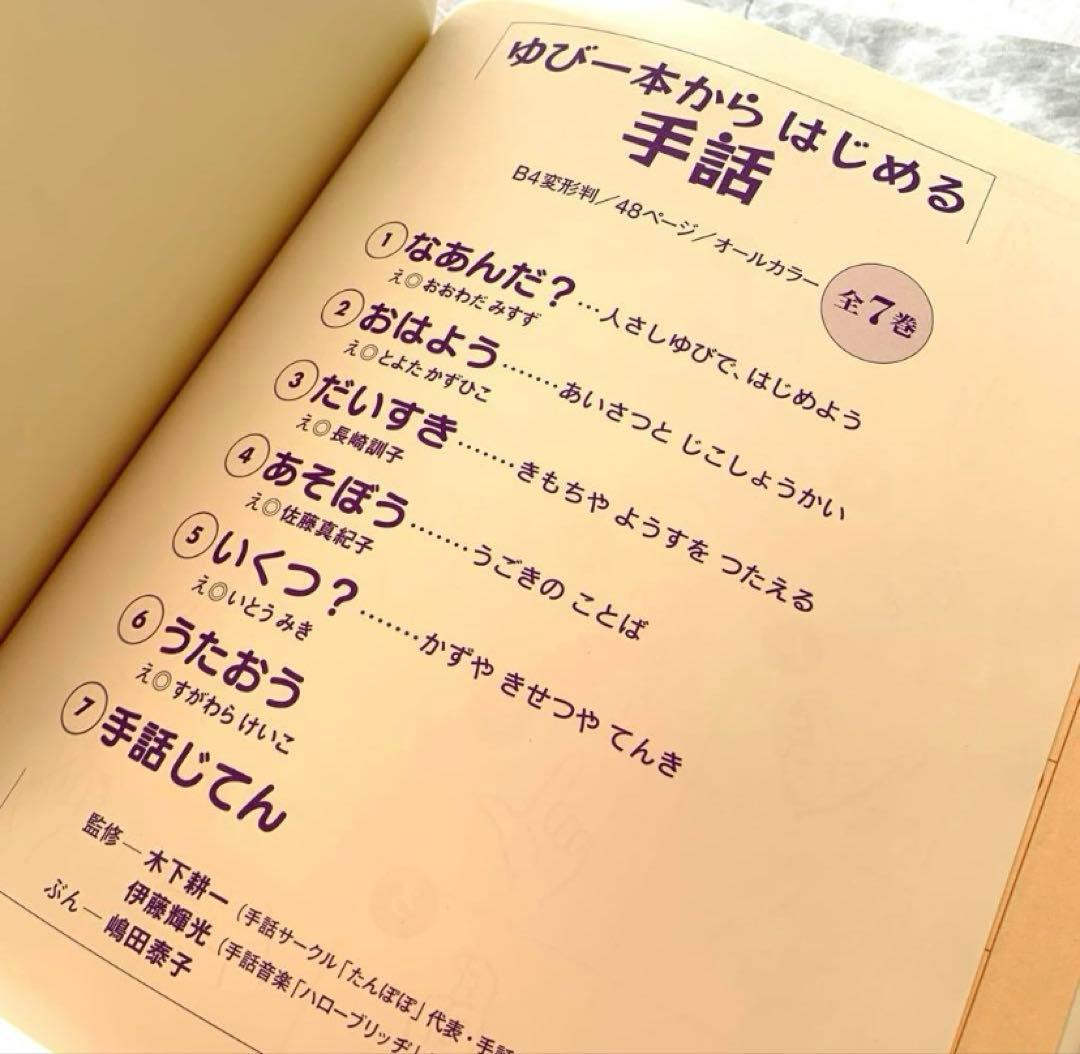 ゆび一本から はじめる
手話
B4変形判／48ページ／オールカラー
全7巻
① なあんだ？…人さしゆびで、はじめよう
え◎おおわだ みすず
② おはよう……‥あいさつと じこしょうかい
え◎とよた かずひこ
③ だいすき……‥きもちや ようすを つたえる
え◎長崎訓子
④ あそぼう……‥うごきの ことば
え◎佐藤真紀子
⑤ いくつ？……‥かずや きせつや てんき
え◎いとう みき
⑥ うたおう
え◎すがわら けいこ
⑦ 手話じてん
監修―木下耕一（手話サークル「たんぽぽ」代表・手話
伊藤輝光（手話音楽「ハローブリッヂ」
ぶん―嶋田泰子